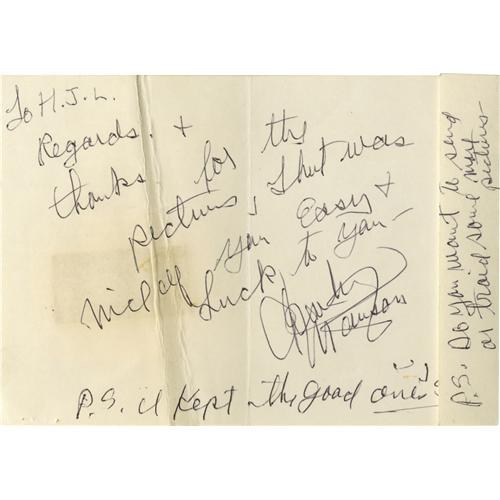 To H.J.L.
Regards. +
thanks for the
pictures, that was
nice of you, Easy +
Luck, to you -
P.S. I kept the good ones
P.S. Do you want to send
or traid some more
pictures -